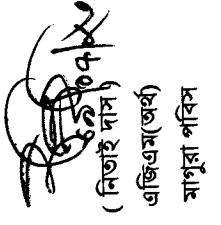 (নিতাই দাস)
এজিএম(অর্থ)
মাগুরা পবিস